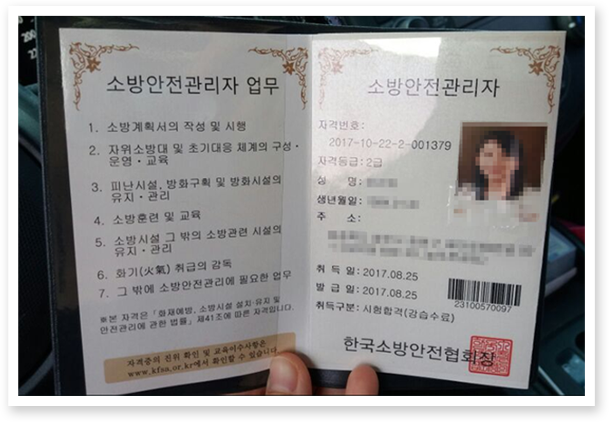 소방안전관리자 업무
1. 소방계획서의 작성 및 시행
2. 자위소방대 및 초기대응 체계의 구성·
운영·교육
3. 피난시설, 방화구획 및 방화시설의
유지·관리
4. 소방훈련 및 교육
5. 소방시설 그 밖의 소방관련 시설의
유지·관리
6. 화기(火氣) 취급의 감독
7. 그 밖에 소방안전관리에 필요한 업무
※본 자격은 「화재예방, 소방시설 설치·유지 및
안전관리에 관한 법률」 제41조에 따른 자격입니다.
자격증의 진위 확인 및 교육이수사항은
www.kfsa.or.kr에서 확인할 수 있습니다.
소방안전관리자
자격번호:
2017-10-22-2-001379
자격등급:2급
성 명:
생년월일:
주 소:
취 득 일:2017.08.25
발 급 일:2017.08.25
취득구분:시험합격(강습수료)
23100570097
한국소방안전협회장